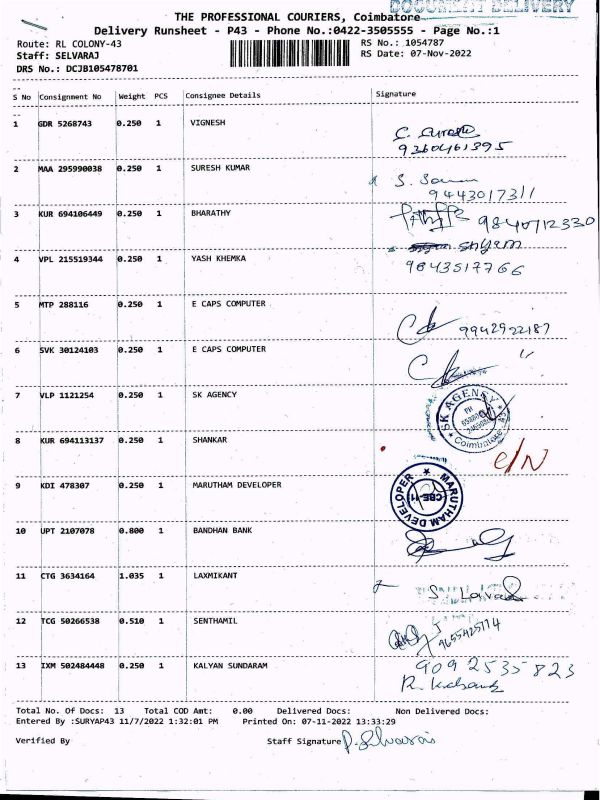 DOCUMENT DELIVERY
THE PROFESSIONAL COURIERS, Coimbatore
Delivery Runsheet - P43 - Phone No.:0422-3505555 - Page No.:1
Route: RL COLONY-43 RS No.: 1054787
Staff: SELVARAJ RS Date: 07-Nov-2022
DRS No.: DCJB105478701
S No Consignment No Weight PCS Consignee Details Signature
1 GDR 5268743 0.250 1 VIGNESH
9360461395
2 MAA 295990038 0.250 1 SURESH KUMAR
9443017311
3 KUR 694106449 0.250 1 BHARATHY 9840712330
shyam
4 VPL 215519344 0.250 1 YASH KHEMKA 9843517766
5 MTP 288116 0.250 1 E CAPS COMPUTER
9942922187
6 SVK 30124103 0.250 1 E CAPS COMPUTER "
7 VLP 1121254 0.250 1 SK AGENCY
SK AGENCY
Coimbatore
8 KUR 694113137 0.250 1 SHANKAR
C/N
9 KDI 478307 0.250 1 MARUTHAM DEVELOPER
MARUTHAM DEVELOPER
CBE-11
10 UPT 2107078 0.800 1 BANDHAN BANK
11 CTG 3634164 1.035 1 LAXMIKANT
12 TCG 50266538 0.510 1 SENTHAMIL
9655425774
13 IXM 502484448 0.250 1 KALYAN SUNDARAM 9092535823
Total No. Of Docs: 13 Total COD Amt: 0.00 Delivered Docs: Non Delivered Docs:
Entered By :SURYAP43 11/7/2022 1:32:01 PM Printed On: 07-11-2022 13:33:29
Verified By Staff Signature P. Selvaraj